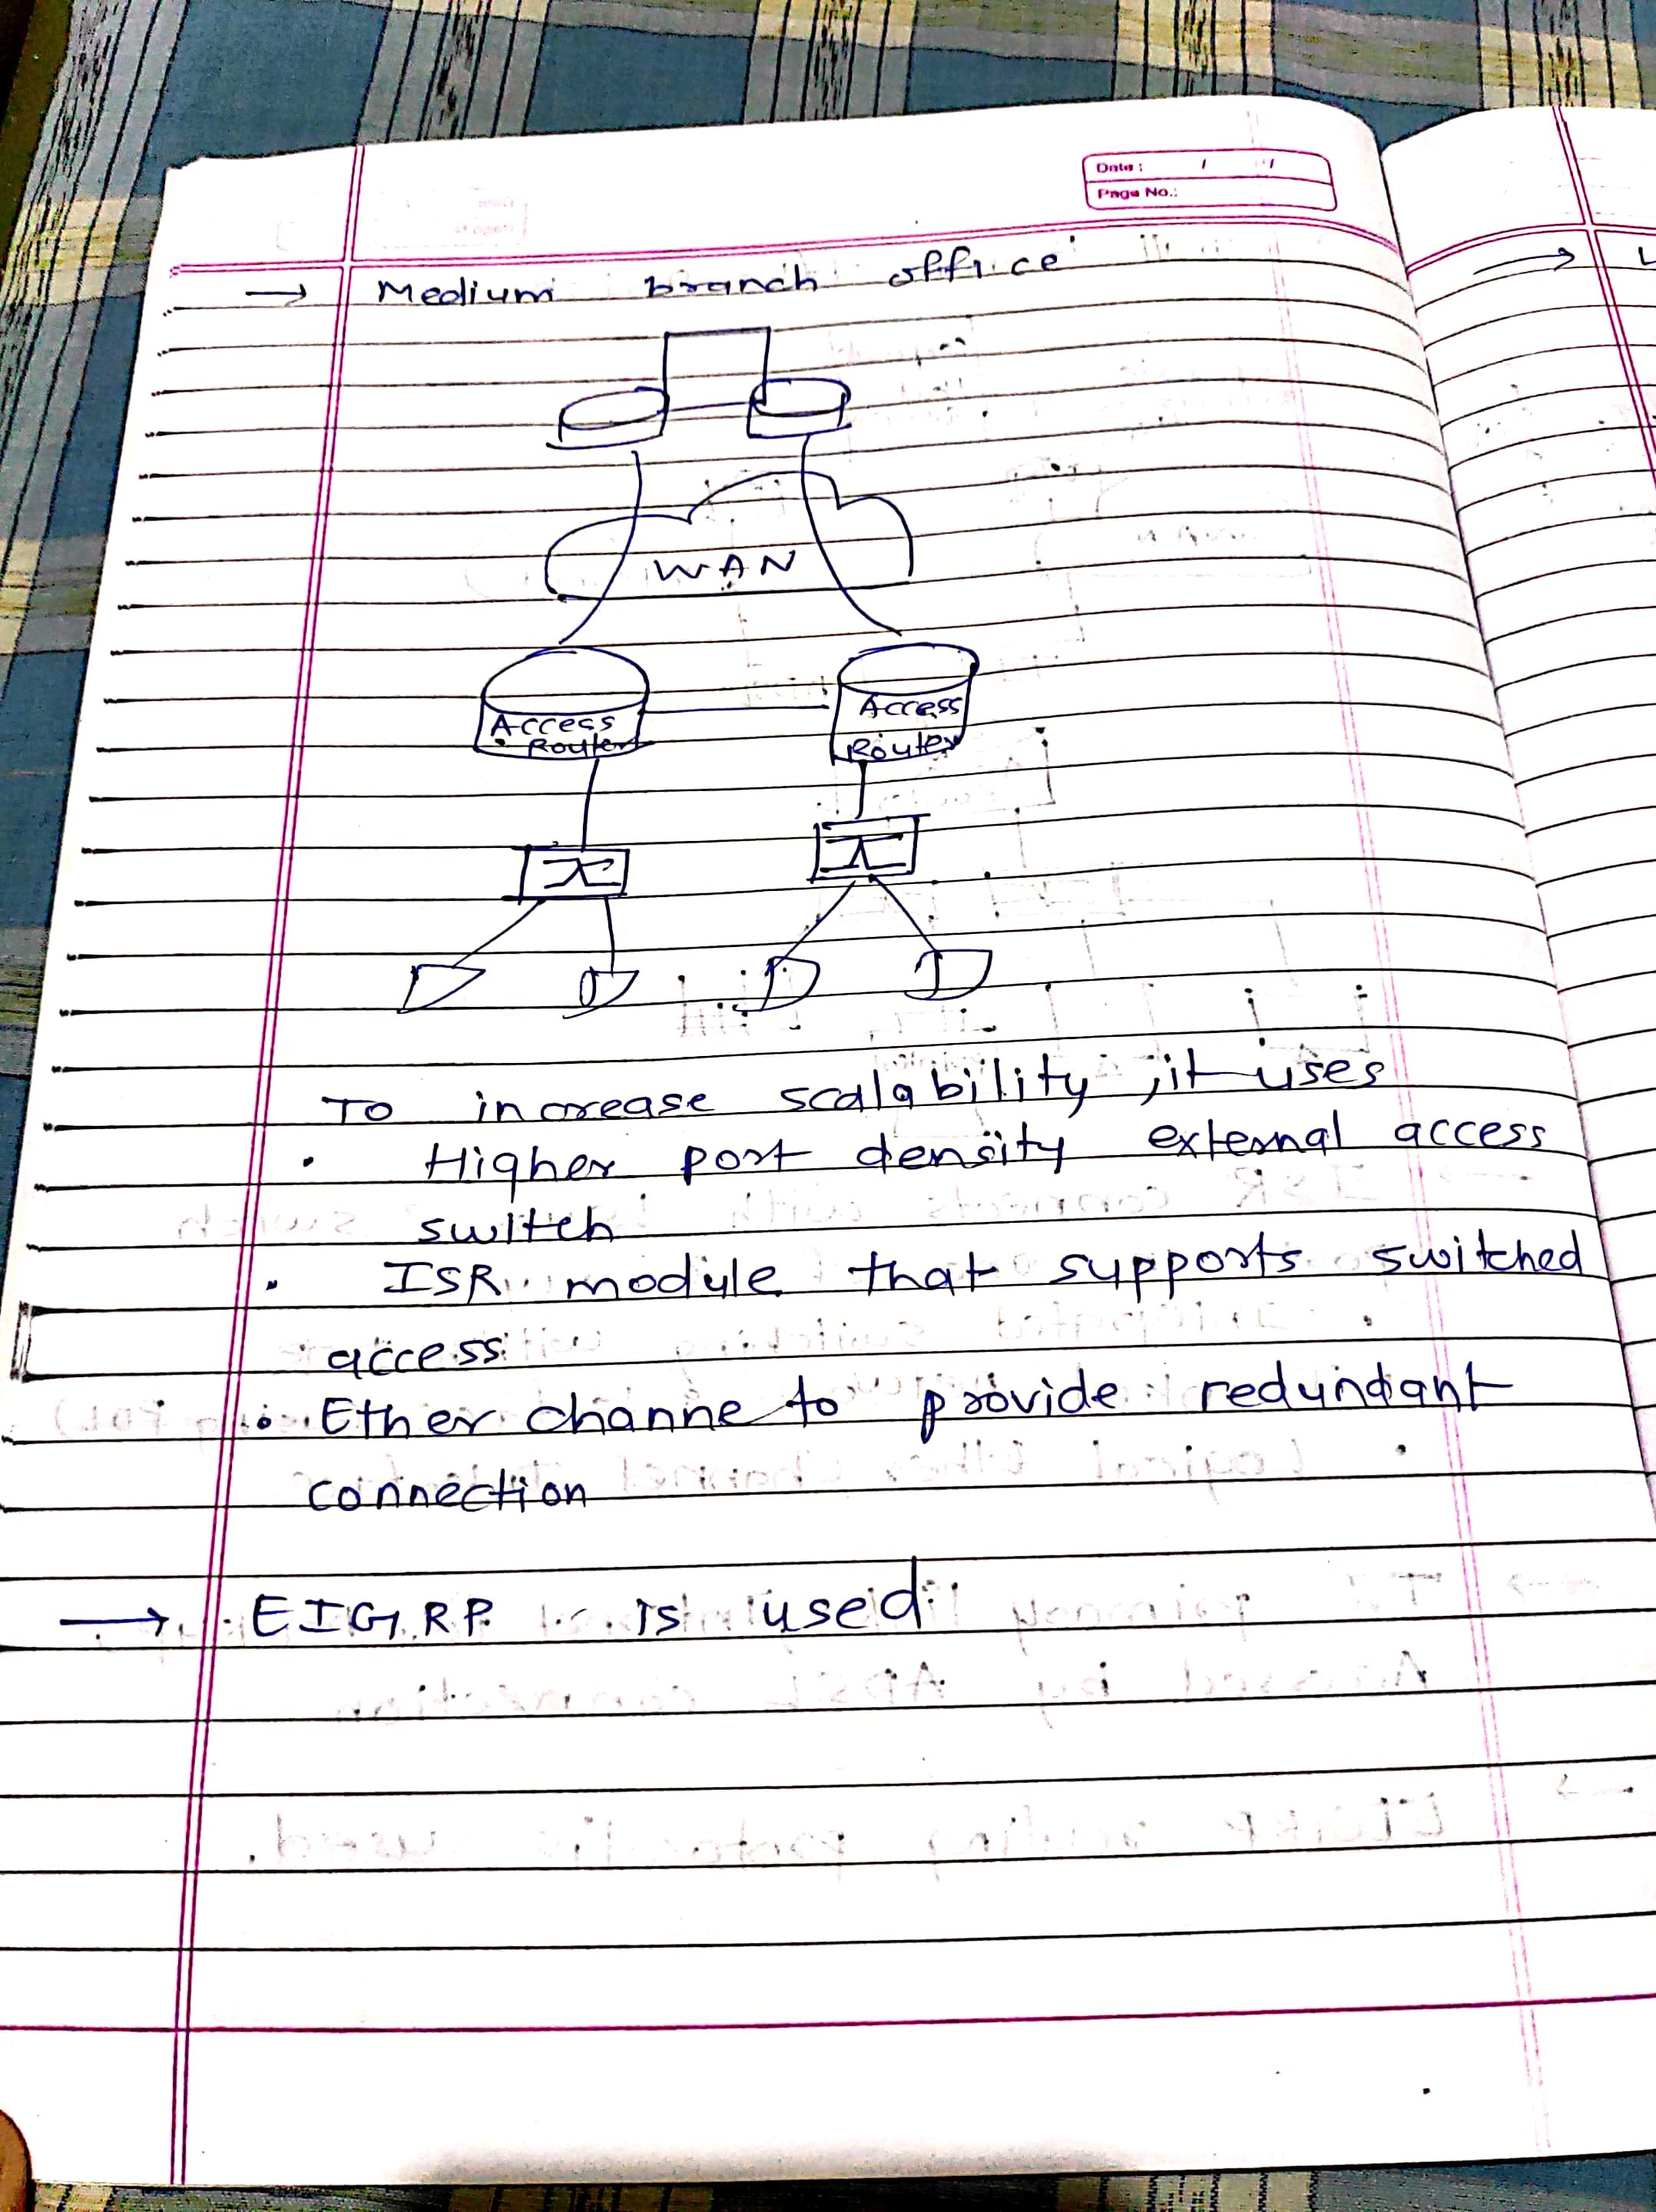 Date : / /
Page No.:
→ Medium branch office
WAN
Access Router
Access Router
To increase scalability, it uses
• Higher port density external access
switch
• ISR module that supports switched
access
• Ether channe to provide redundant
connection
→ EIGRP is used